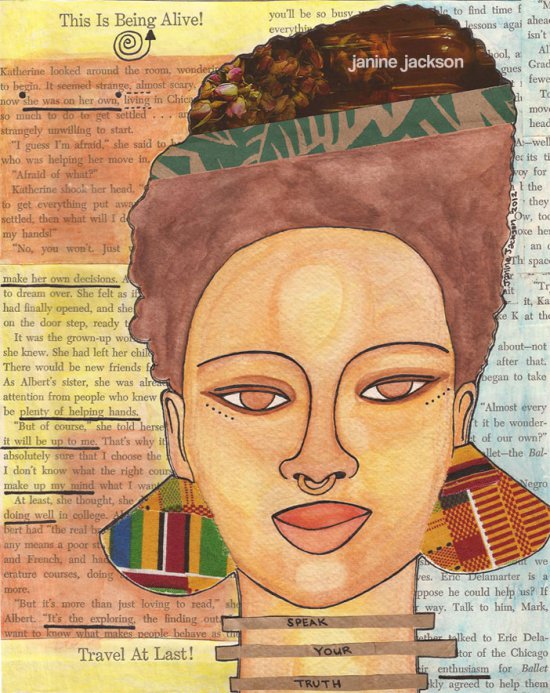 This Is Being Alive!
Katherine looked around the room, wondering
to begin. It seemed strange, almost scary.
now she was on her own, living in Chica
so much to do to get settled . . . an
strangely unwilling to start.
"I guess I'm afraid," she said to h
who was helping her move in.
"Afraid of what?"
Katherine shook her head, "
to get everything put away
settled, then what will I d
my hands!"
"No, you won't. Just
make her own decisions. A
to dream over. She felt as if
had finally opened, and she
on the door step, ready t
It was the grown-up wor
she knew. She had left her chil
There would be new friends
As Albert's sister, she was alrea
attention from people who knew
be plenty of helping hands.
"But of course," she told herse
it will be up to me. That's why it
absolutely sure that I choose the
I don't know what the right cour
make up my mind what I want
At least, she thought, she
doing well in college. A
bert had "the real b
any means a poor st
and French, and ha
erature courses, doing
more.
"But it's more than just loving to read," she
Albert. "It's the exploring, the finding out
want to know what makes people behave as the
Travel At Last!
you'll be so busy
janine jackson
Janine Jackson 2012
able to find time f
lessons agai
about—not
after that.
began to take
"Almost every
t it be wonder-
of our own?"
allet—the Bal-
Negro
we
ves. Eric Delamarter is
ppose he could help us? If
way. Talk to him, Mark,
other talked to Eric Dela-
tor of the Chicago
eir enthusiasm for Ballet
kly agreed to help them
SPEAK
YOUR
TRUTH